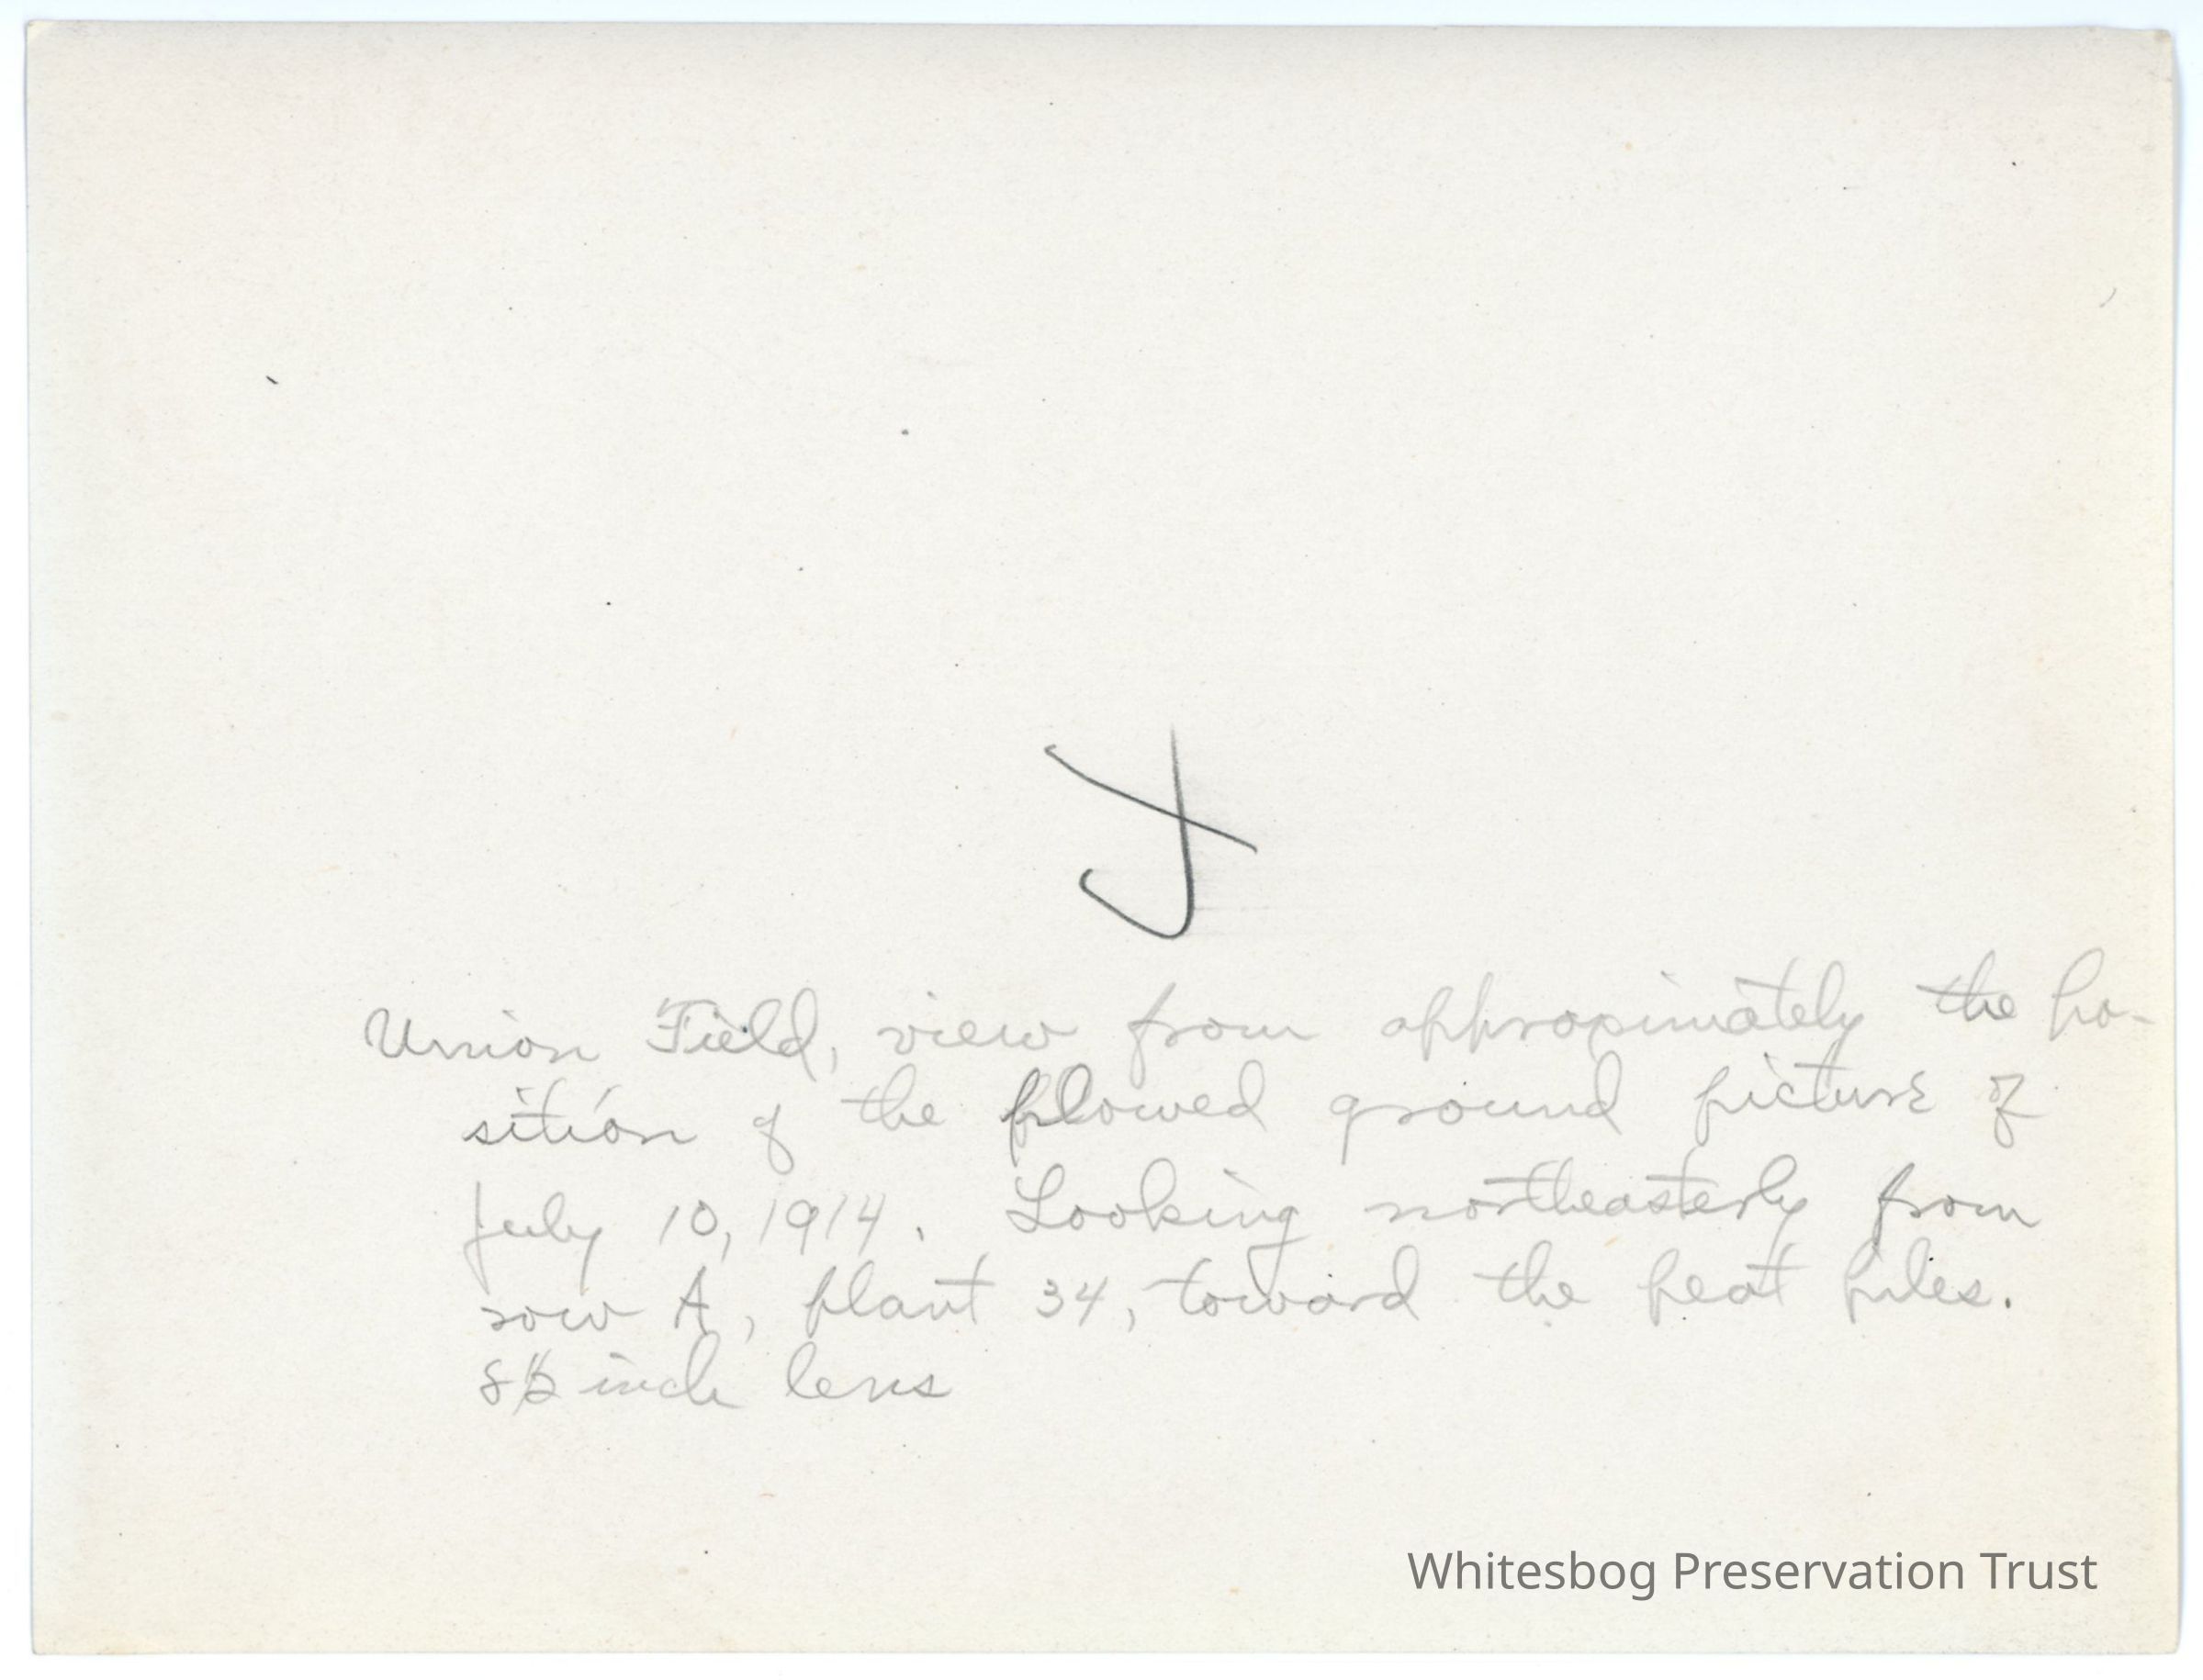 Union Field, view from approximately the po-
sition of the plowed ground picture of
July 10, 1914. Looking northeasterly from
row A, plant 34, toward the peat piles.
8½ inch lens
Whitesbog Preservation Trust